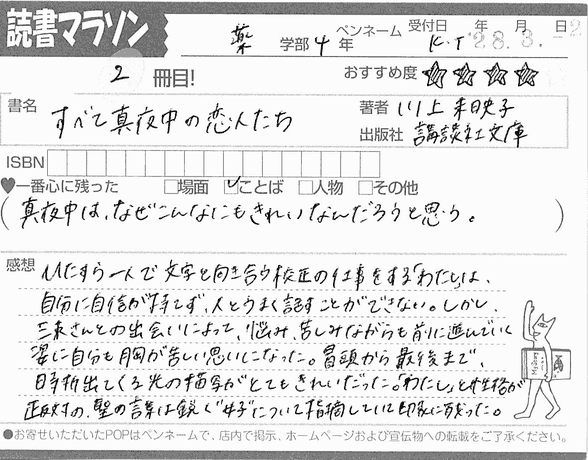 読書マラソン
薬 学部 4 年
ペンネーム K.T
受付日 年 月 日
28.3.
2 冊目!
おすすめ度 ★★★★
書名 すべて真夜中の恋人たち
著者 川上未映子
出版社 講談社文庫
ISBN
♥一番心に残った □場面 ☑ことば □人物 □その他
(真夜中は、なぜこんなにもきれいなんだろうと思う。)
感想 ひたすら一人で文字と向き合う校正の仕事をする「わたし」は、
自分に自信が持てず、人とうまく話すことができない。しかし、
三束さんとの出会いによって、悩み、苦しみながらも前に進んでいく
姿に自分も胸が苦しい思いになった。冒頭から最後まで、
時折出てくる光の描写がとてもきれいだった。「わたし」と性格が
正反対の、聖の言葉は鋭く"女子"について指摘していて印象に残った。
●お寄せいただいたPOPはペンネームで、店内で掲示、ホームページおよび宣伝物への転載をご了承ください。